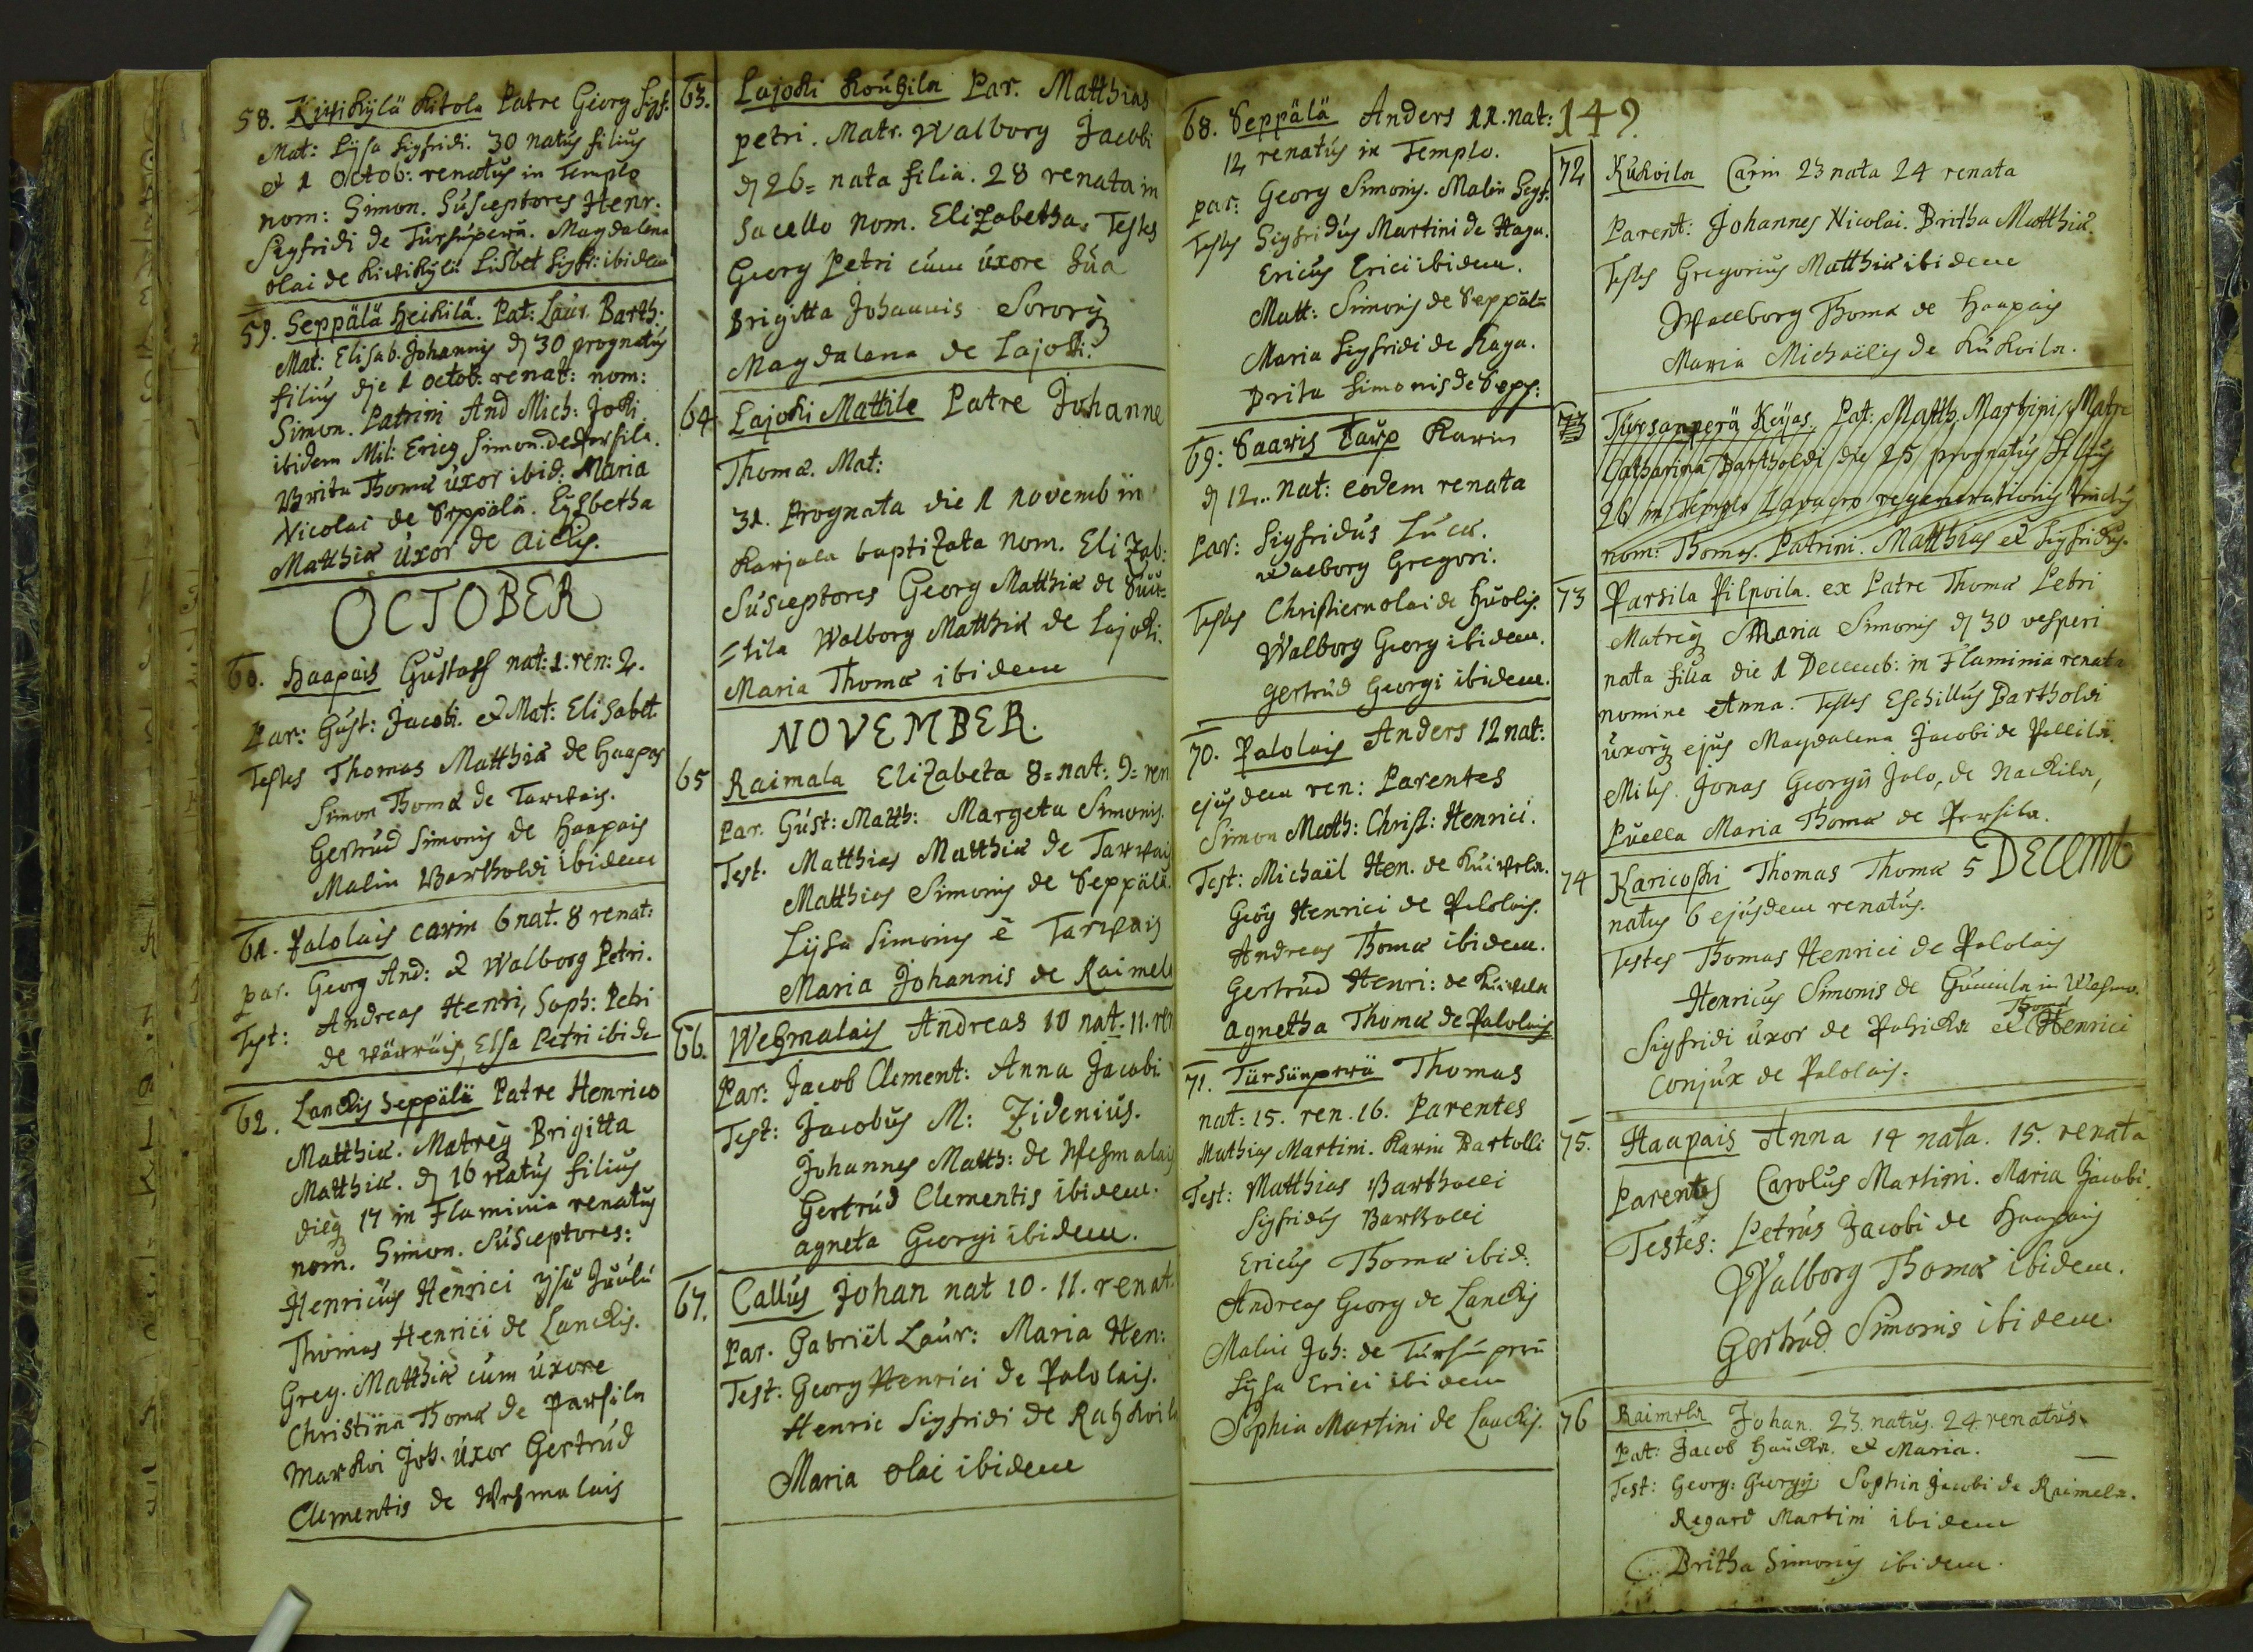 58. Kivikylä Kitola Patre Georg Sigf.
Mat: Lijsa Sigfridi. 30 natus filius
et 1 Octob: renatus in Templo
nom: Simon. Susceptores Henr:
Sigfridi de Tursunperä. Magdalena
olai de Kivikylä Lisbet Sigfr: ibidem
59. Seppälä Heikilä. Pat: Laur. Barth:
Mat: Elisab. Johannis d 30 prognatus
filius die 1 octob. renat: nom:
Simon. Patrini And Mich: Joki
ibidem Mil: Erics Simon. de Parsila.
Brita Thomæ uxor ibid: Maria
Nicolai de Seppälä. Elsbetha
Matthiæ uxor de
OCTOBER
60. Haapais Gustaff nat: 1. ren: 2.
Par: Gust: Jacobi. et Mat: Elisabet.
Testes Thomas Matthiæ de Haapas
Simon Thomæ de Tarvais.
Gertrud Simonis de Haapais
Malin Bartholdi ibidem
61. Palolais Carin 6 nat. 8 renat:
par. Georg And: et Walborg Petri.
Test: Andreas Henri, Soph: Petri
de Wärräis, Elsa Petri ibide
62. Lanckis Seppälä Patre Henrico
Matthiæ. Matreq Brigitta
Matthiæ. d 16 natus filius
dieq 17 in Flaminia renatus
nom. Simon. Susceptores:
Henricus Henrici
Thomas Henrici de Lanckis.
Greg. Matthiæ cum uxore
Christina Thomæ de Parsila
Markoi Joh. uxor Gertrud
Clementis de Wehmalais
63. Lajoki Kouhila Par. Matthias
petri. Matr. Walborg Jacobi
d 26 = nata filia. 28 renata in
Sacello nom. Elizabetha. Testes
Georg Petri cum uxore sua
Brigitta Johannis Sororq
Magdalena de Lajoki.
64. Lajoki Mattila Patre Johanne
Thomæ. Mat:
31. Prognata die 1 novemb in
Karjala baptizata nom. Elizab:
Susceptores Georg Matthiæ de Suu=
=tila Walborg Matthiæ de Lajoki.
Maria Thomæ ibidem
NOVEMBER.
65 Raimala Elizabeta 8 = nat: 9 = ren
Par. Gust: Matth: Margeta Simonis.
Test. Matthias Matthiæ de Tarvais
Matthias Simonis de Seppälä.
Lijsa Simonis è Tarvais
Maria Johannis de Raimela
66. Wehmalais Andreas 10 nat. 11. ren
Par: Jacob Clement: Anna Jacobi.
Test: Jacobus M: Zidenius.
Johannes Matth: de Wehmalais
Gertrud Clementis ibidem.
agneta Georgi ibidem.
67. Callus Johan nat 10. 11. renat.
Par. Gabriel Laur: Maria Hen:
Test: Georg Henrici de Palolais.
Henric Sigfridi de Rahkoila
Maria olai ibidem
149.
68. Seppälä Anders 11. nat:
12 renatus in Templo.
par: Georg Simonis. Malin Sigf:
Testes Sigfridus Martini de Haga.
Ericus Erici ibidem.
Matt: Simonis de Seppäl=
Maria Sigfridi de Haga.
Brita Simonis de Sepp:
69: Saaris Taup Karin
d 12.. nat: eodem renata
Par: Sigfridus Lucæ.
Walborg Gregori.
Testes Christiern olai de Huolis.
Walborg Georg ibidem.
gertrud Georgi ibidem.
70. Palolais Anders 12 nat:
ejusdem ren: Parentes
Simon Matth: Christ: Henrici.
Test: Michaël Hen. de
Georg Henrici de Palolais.
Andreas Thomæ ibidem.
Gertrud Henri: de
agnetha Thomæ de Palolais
71. Tursunperä Thomas
nat: 15. ren. 16. Parentes
Mathias Martini. Karin Bartolli
Test: Matthias Bartholli
Sigfridus Bartholli
Ericus Thomæ ibid:
Andreas Georg de Lanckis
Malin Joh: de Tursunperä
Lijsa Erici ibidem
Sophia Martini de Lanckis.
72 Kukoila Carin 23 nata 24 renata
Parent: Johannes Nicolai. Britha Matthiæ.
Testes Gregorius Matthiæ ibidem
Wallborg Thomæ de Haapais
Maria Michaëlis de Kukoila.
73 Tursanperä Keijas. Pat: Matth. Martini, Matre
Catharina Bartholdi die 25 prognatus filius
26 in Templo Lavacro regenerationis tinctus
nom: Thomas. Patrini. Matthias et Sigfridus.
73 Parsila Pilpoila. ex Patre Thoma Petri
Matreq Maria Simonis d 30 vesperi
nata filia die 1 Decemb: in Flaminia renata
nomine Anna. Testes Eschillus Bartholdi
uxorq ejus Magdalena Jacobi de Pellilä.
Miles. Jonas Georgii Jalo, de Nackila,
Puella Maria Thomæ de Parsila.
DECEMB
74 Karicoski Thomas Thomæ 5
natus 6 ejusdem renatus.
Testes Thomas Henrici de Palolais
Henricus Simonis de Gunnila in Wehma.
Sigfridi uxor de et Henrici
conjux de Palolais.
75. Haapais Anna 14 nata. 15. renata
Parentes Carolus Martini. Maria Jacobi.
Testes: Petrus Jacobi de Haapais
Walborg Thomæ ibidem.
Gertrud Simonis ibidem.
76 Raimela Johan. 23 natus. 24 renatus.
Pat: Jacob Hauckæ. et Maria.
Test: Georg: Georgij Sophia Jacobi de Raimela.
Regard Martini ibidem
Britha Simonis ibidem.